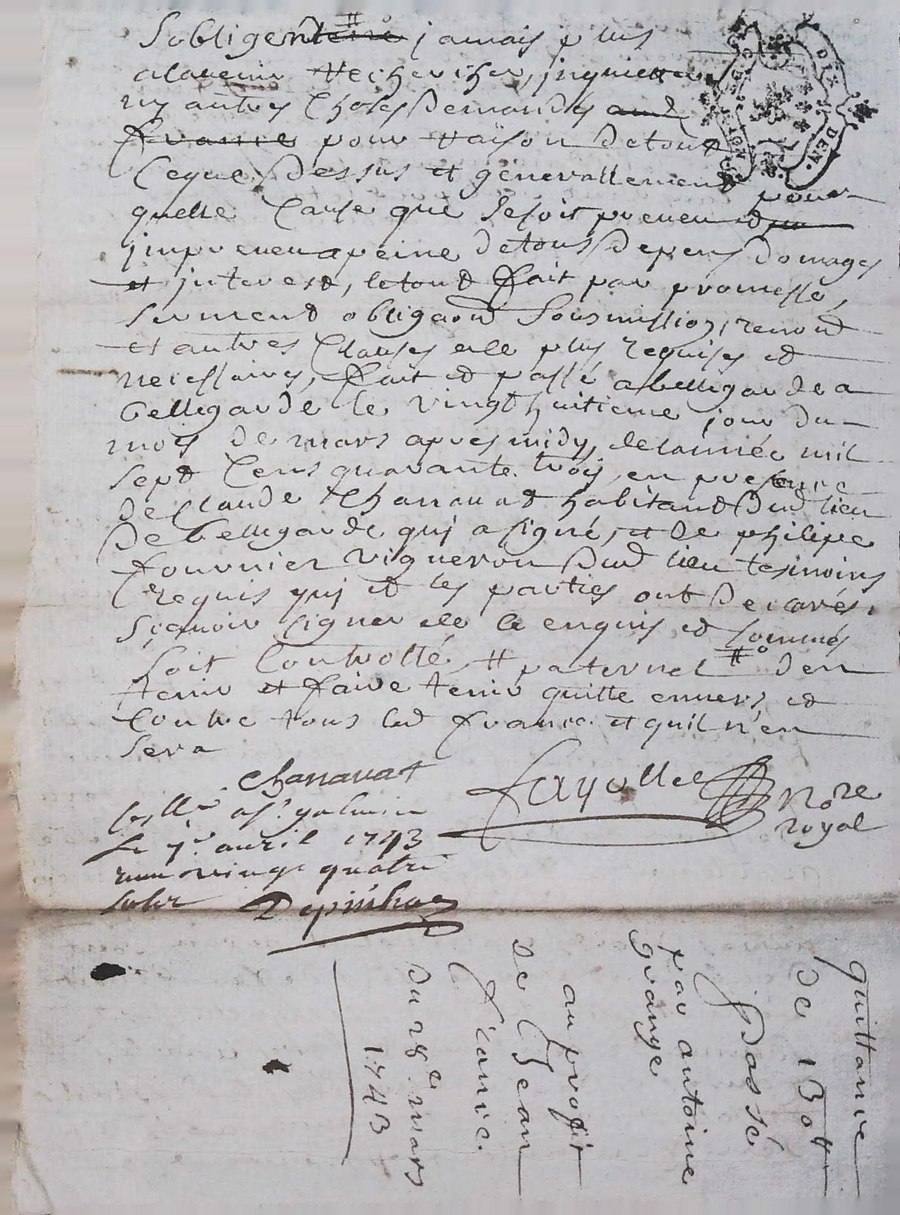 Sobligent jamais plus
alavenir Rechercher, jnquietter
ny autres choses Demander aud
france pour raison detout
Ceque Dessus et generallement pour
quelle Cause que Cesoit preveu ou
jmpreveu apeine detous Depens Domages
et jnterest, letout fait par promesse,
serment obligaon Sousmission, renond
et autres Clauses elle plus requises et
necessaires, fait et passé abellegarde a
bellegarde le vingt huitieme jour du
mois de mars apres midy, delannée mil
sept Cens quarante trois, en presence
de Claude Chanavat habitant Dud lieu
De bellegarde qui a signé, et de philipe
fournier vigneron Dud lieu tesmoins
Requis qui et les parties ont declarés,
Sçavoir signer elle ce enquis et sommés
soit Controllé # paternel # den
tenir et faire tenir quitte envers et
Contre tous led france. et quil n'en
sera
Chanavat
fayolle Nore
royal
Le 7e avril 1743
vingt quatre
solz
quittance
de 130
passé
par antoine
grange
au profit
de Jean
france.
du 28e mars
1743
DEN.